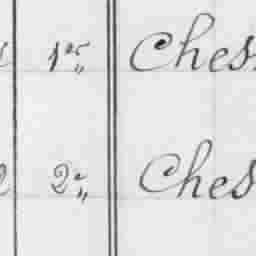 1 1er „ Ches
2 2e „ Ches